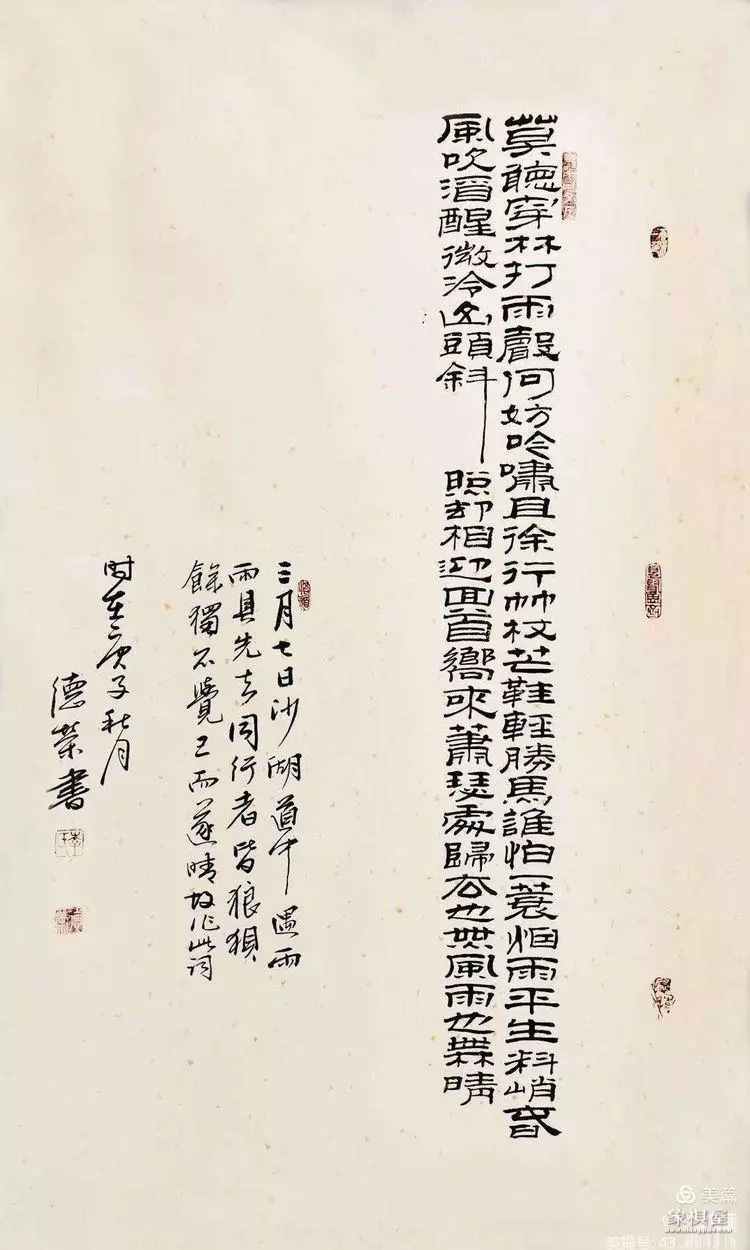 莫聽穿林打雨聲何妨吟嘯且徐行竹杖芒鞋輕勝馬誰怕一蓑烟雨平生料峭春
風吹酒醒微冷山頭斜照却相迎回首嚮來蕭瑟處歸去也無風雨也無晴
三月七日沙湖道中遇雨
雨具先去同行者皆狼狽
餘獨不覺已而遂晴故作此詞
時在庚子秋月
德榮書
美篇
象棋屋